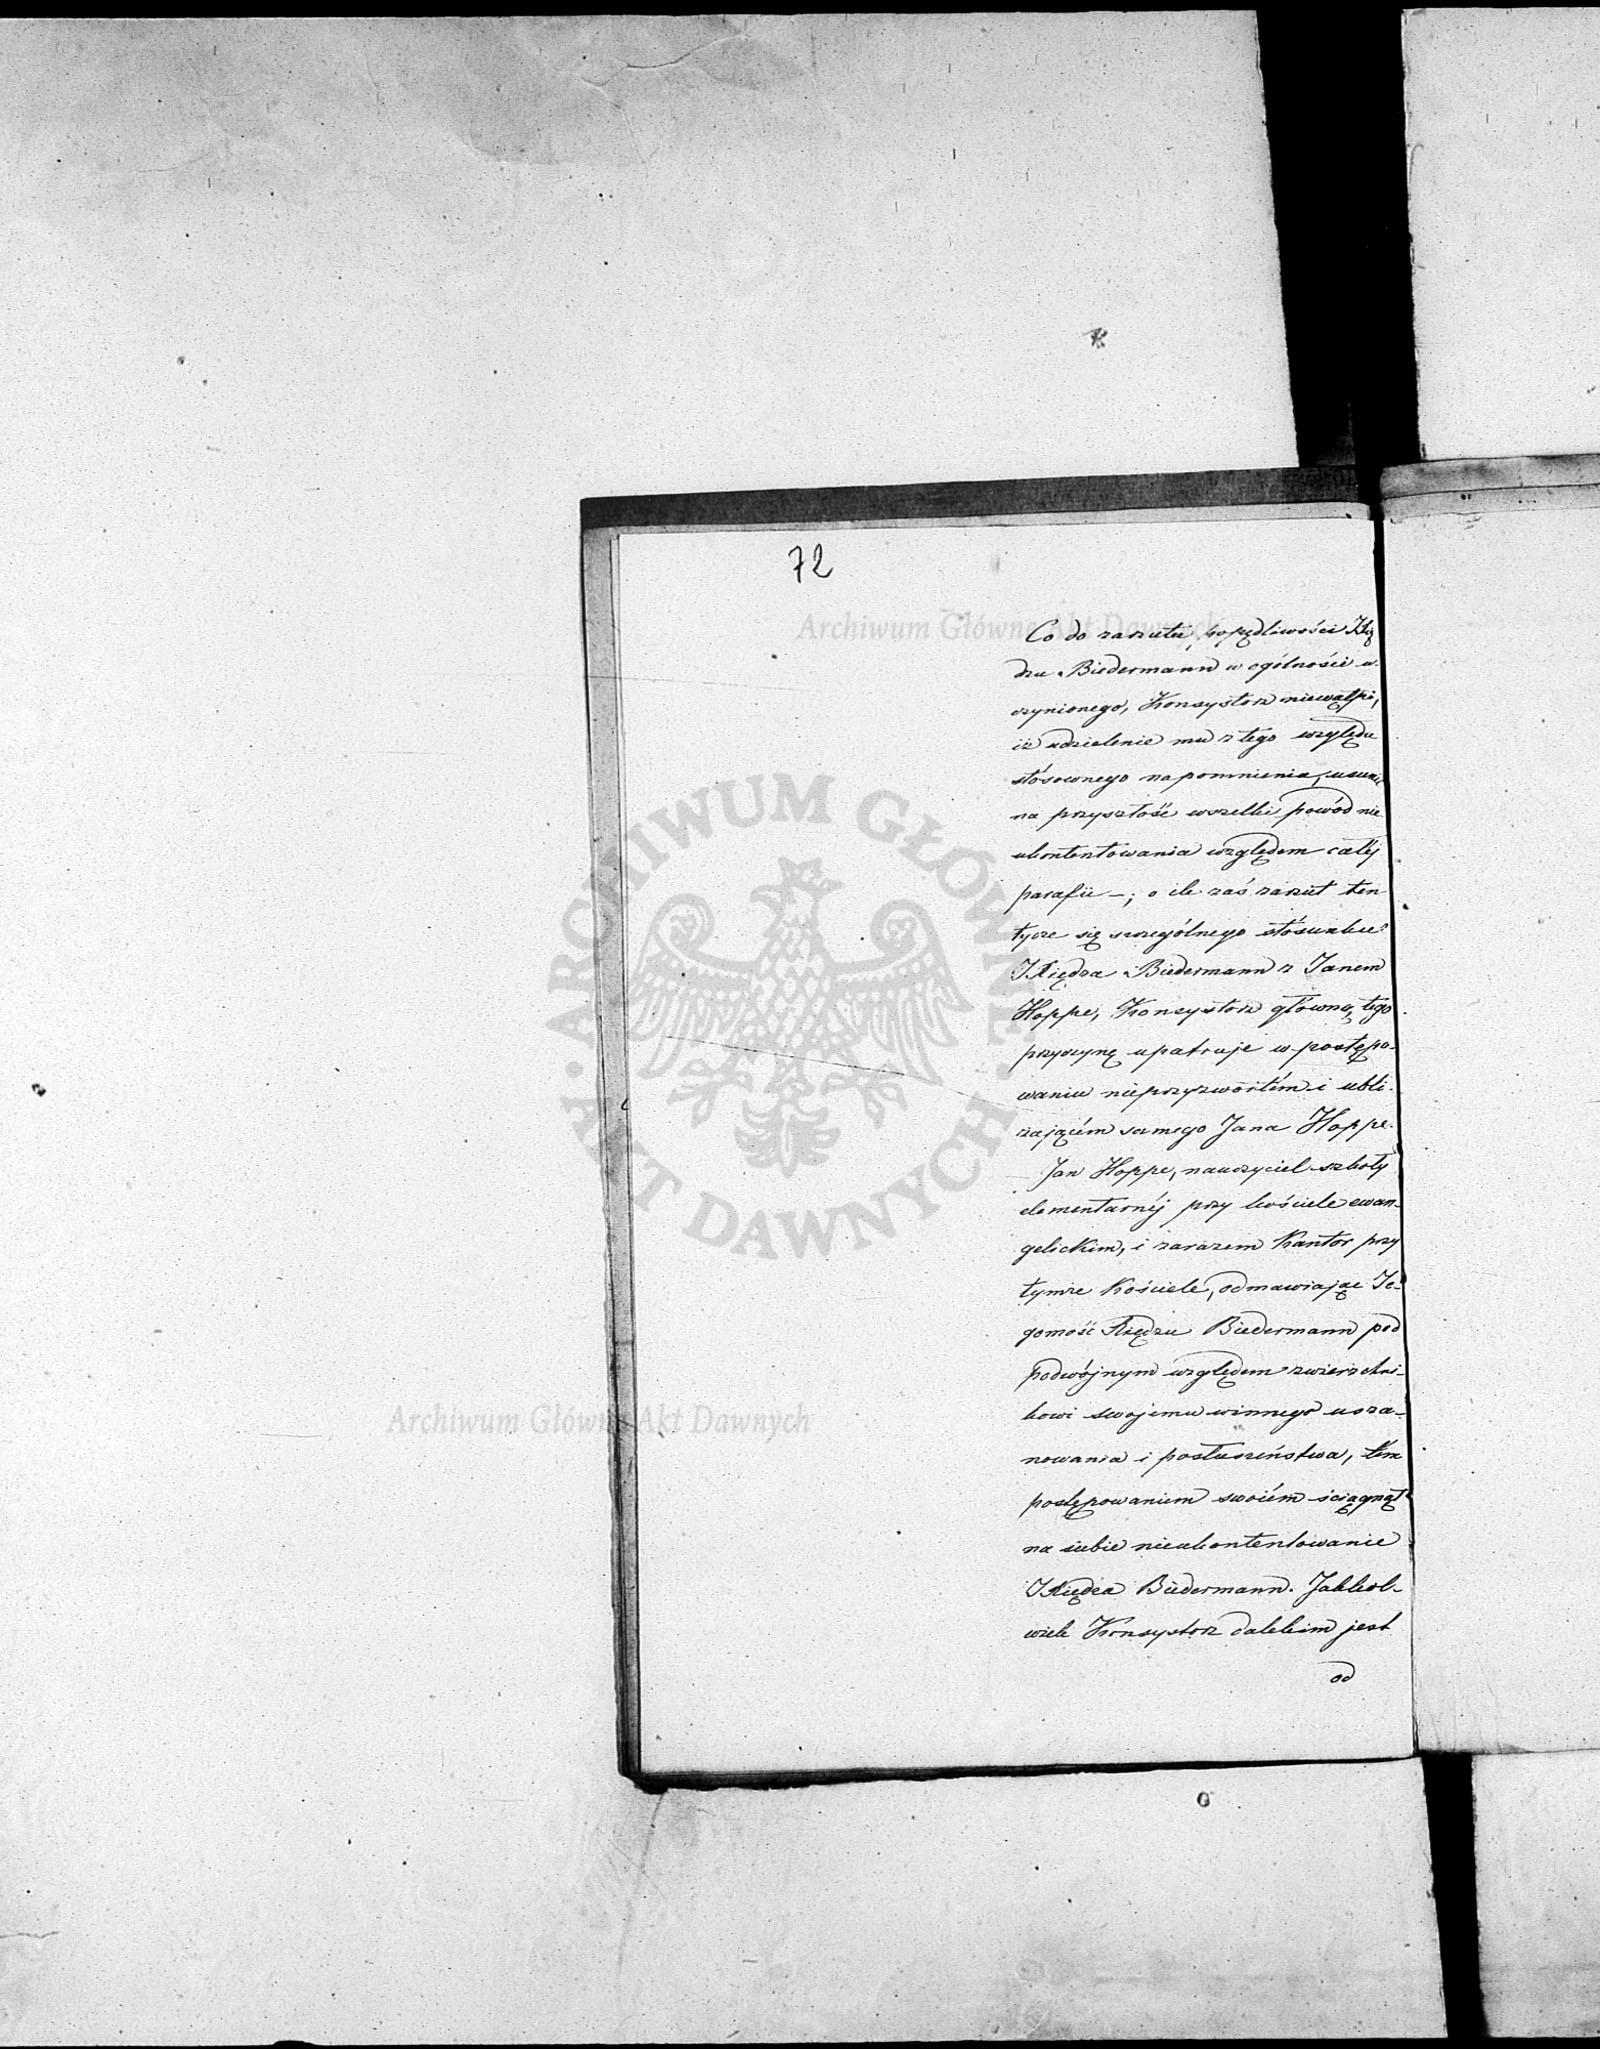 72
Co do zarzutu, popędliwości Xię
dzu Biedermann w ogólności u-
czynionego, Konsystorz niewątpi,
iż udzielenie mu z tego względu
stósownego napomnienia, usunie
na przyszłość wszelki powód nie
ukontentowania względem całéj
parafii —; o ile zaś zarzut ten
tycze się szczególnego stósunku
JXiędza Biedermann z Janem
Hoppe, Konsystorz główną tego
przyczynę upatruje w postępo-
waniu nieprzyzwoitém i ubli-
żającém samego Jana Hoppe.
Jan Hoppe, nauczyciel szkoły
elementarnéj przy kościele ewan-
gelickim, i zarazem Kantor przy
tymże Kościele, odmawiając Je-
gomość Xiędzu Biedermann pod
podwójnym względem zwierzchni-
kowi swojemu winnego usza-
nowania i posłuszeństwa, tém
postępowaniem swoiém ściągnął
na siebie nieukontentowanie
JXiędza Biedermann. Jakkol-
wiek Konsystorz dalekim jest
od
Archiwum Główne Akt Dawnych
Archiwum Główne Akt Dawnych
ARCHIWUM GŁÓWNE AKT DAWNYCH